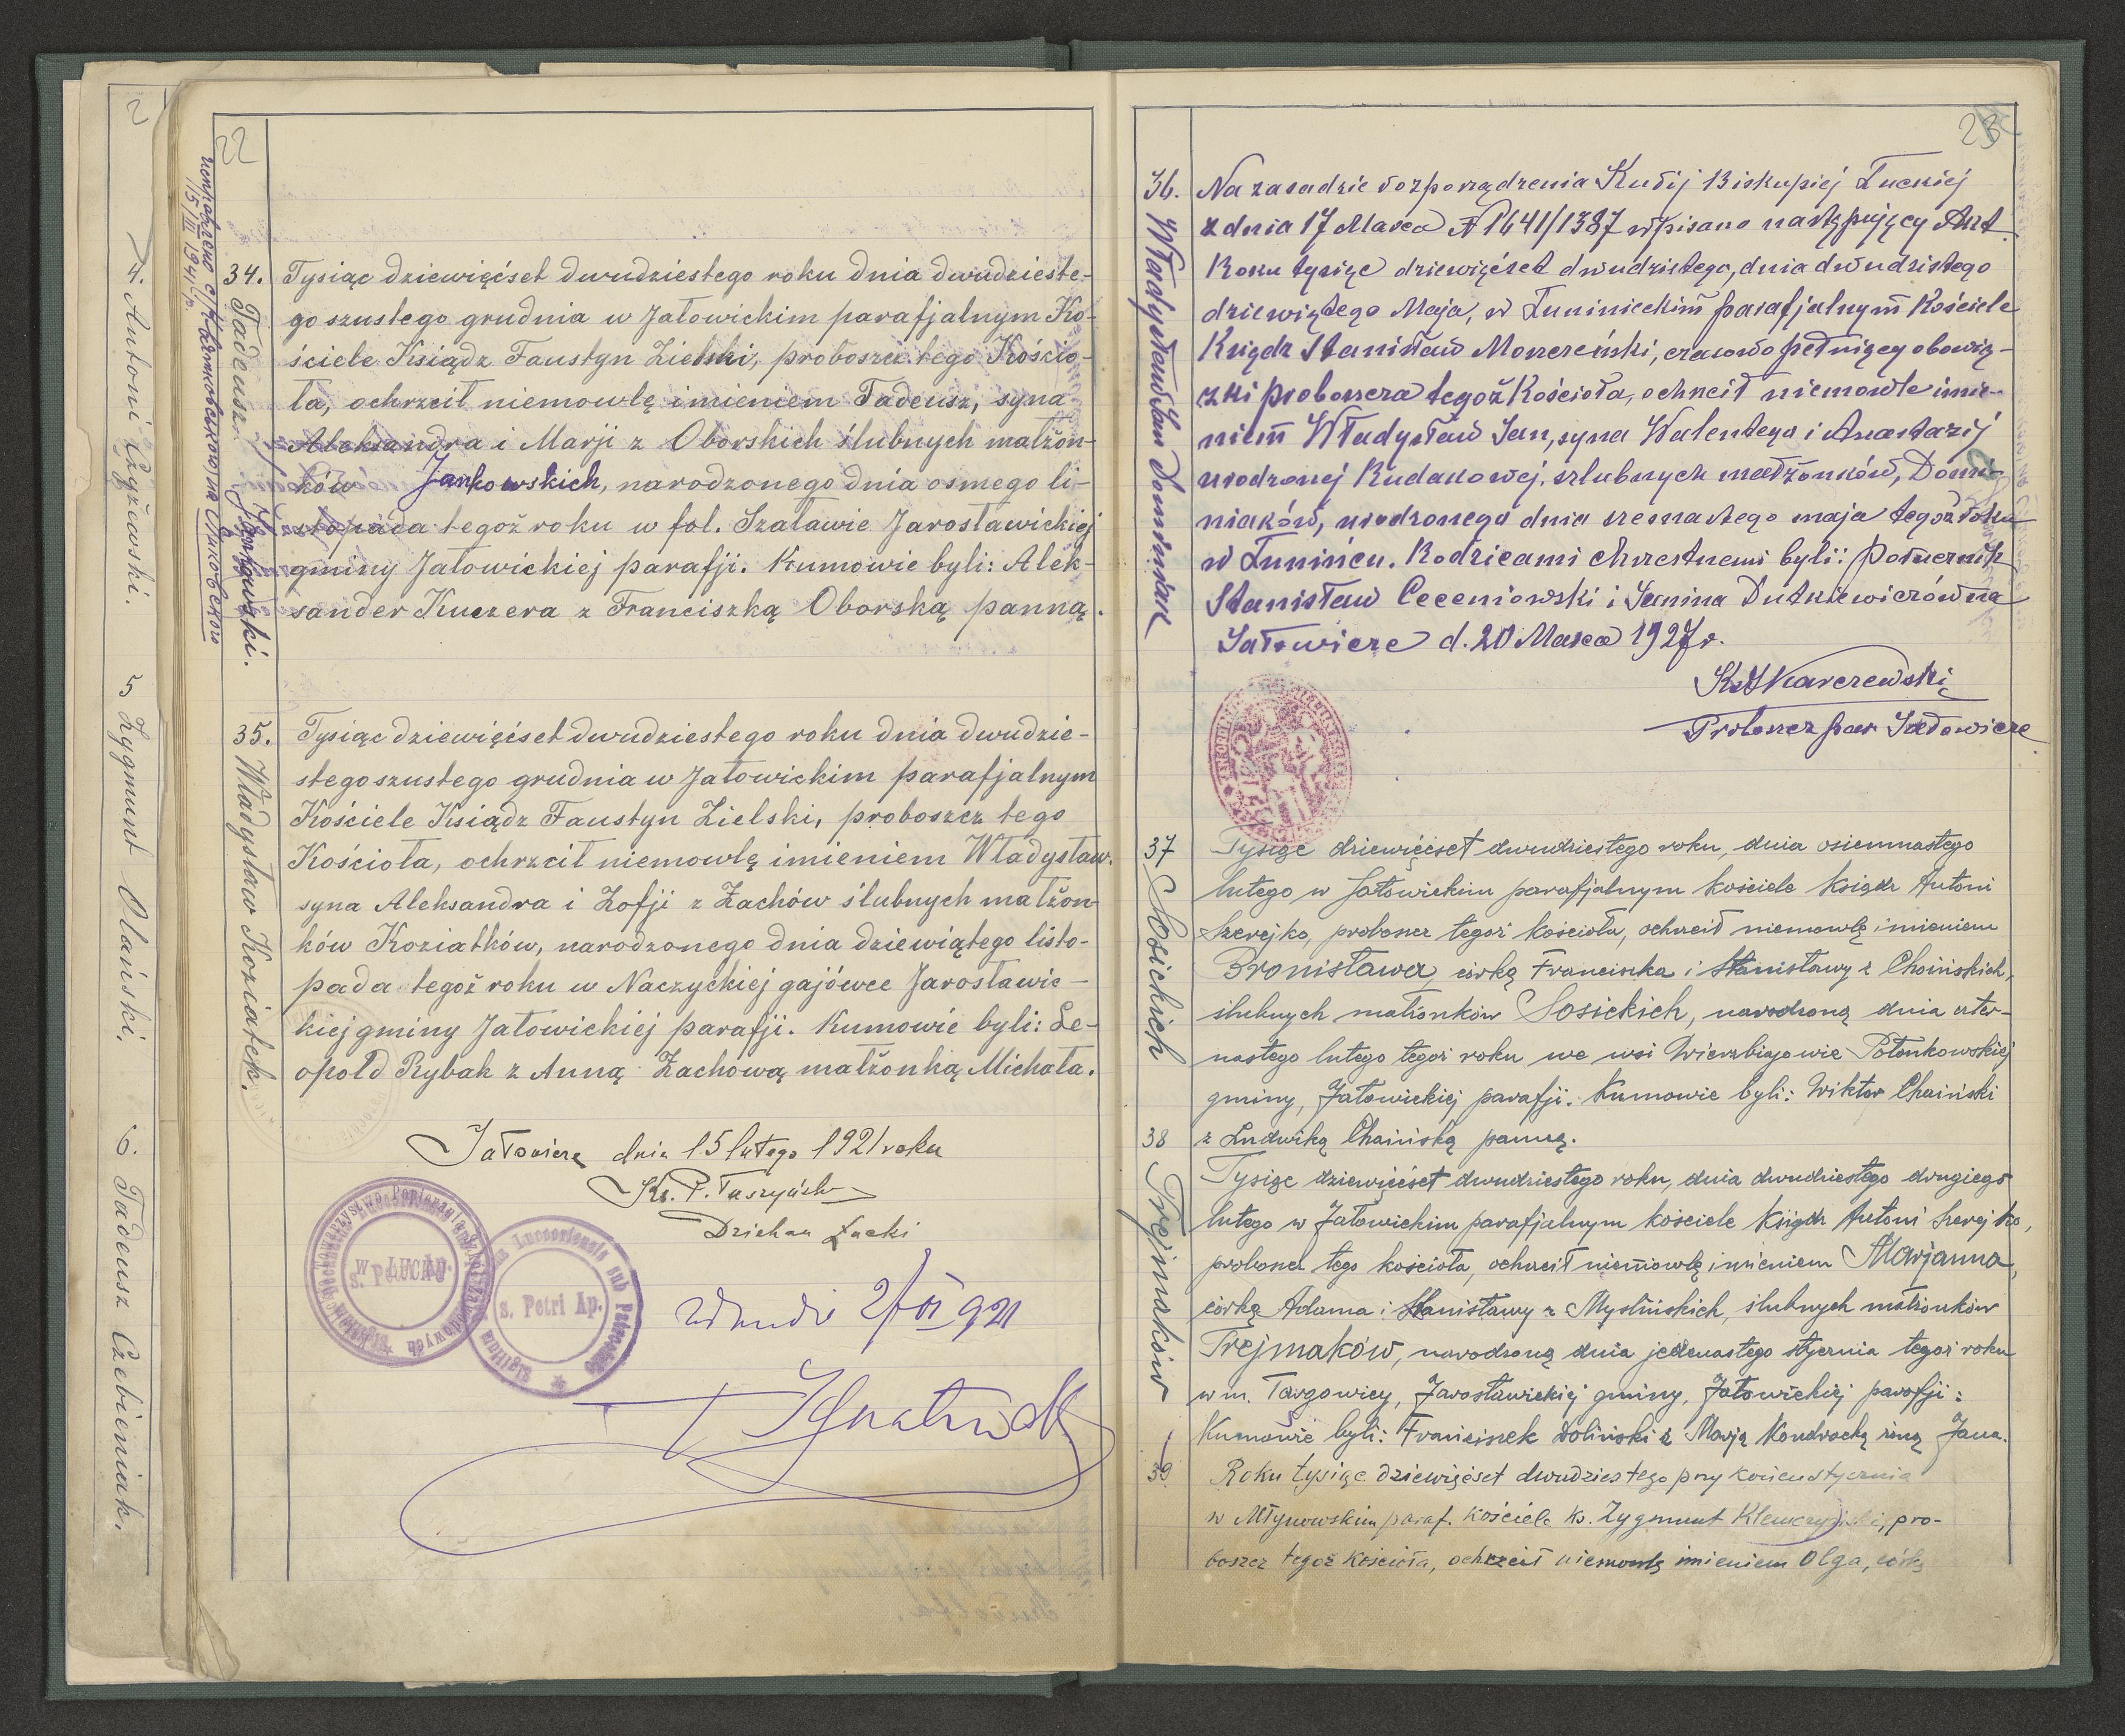 2
4. Antoni Czyżewski.
5 Zygmunt Olański.
6. Tadeusz Czebieniak.
22
15/III 1941 r.
34. Tadeusz Jankowski.
Tysiąc dziewięćset dwudziestego roku dnia dwudzieste-
go szustego grudnia w Jałowickim parafjalnym Ko-
ściele Ksiądz Faustyn Zielski, proboszcz tego Kościo-
ła, ochrzcił niemowlę imieniem Tadeusz, syna
Aleksandra i Marji z Oborskich ślubnych małżon-
ków Jankowskich, narodzonego dnia osmego li-
stopada tegoż roku w fol. Szaławie Jarosławickiej
gminy Jałowickiej parafji. Kumowie byli: Alek-
sander Kuczera z Franciszką Oborską panną.
35. Władysław Koziatek.
Tysiąc dziewięćset dwudziestego roku dnia dwudzie-
stego szustego grudnia w Jałowickim parafjalnym
Kościele Ksiądz Faustyn Zielski, proboszcz tego
Kościoła, ochrzcił niemowlę imieniem Władysław.
syna Aleksandra i Zofji z Zachów ślubnych małżon-
ków Koziatków, narodzonego dnia dziewiątego listo-
pada tegoż roku w Naczyckiej gajówce Jarosławic-
kiej gminy Jałowickiej parafji. Kumowie byli: Le-
opold Rybak z Anną Zachową małżonką Michała.
Jałowicze dnia 15 lutego 1921 roku
Ks. P.
Dziekan Łucki
w ŁUCKU
s. Petri Ap.
921
23
36. Władysław Jan Dominiak
Na zasadzie rozporządzenia Kurij Biskupiej Łuckiej
z dnia 17 Marca № 1641/1387 wpisano następujący Akt.
Roku tysiąc dziewięćset dwudziestego, dnia dwudziestego
dziewiątego Maja, w Łuninieckim parafjalnym Kościele
Ksiądz Stanisław Moszczeński, czasowo pełniący obowią-
zki proboszcza tegoż Kościoła, ochrcił niemowle imie-
niem Władysław Jan, syna Walentego i Anastazij
urodzonej Rudakowej, szlubnych małżonków, Domi-
niaków, urodzonego dnia szesnastego maja tegoż roku
w Łunińcu. Rodzicami chrzestnemi byli: porucznik
Stanisław Ceceniowski i Janina Dutkiewiczówna
Jałowicze d. 20 Marca 1927 r.
Ks. Karczewski
Proboszcz par Jałowicze
37 Sosickich
Tysiąc dziewięćset dwudziestego roku, dnia osiemnastego
lutego w Jałowickim parafjalnym kościele ksiądz Antoni
Szerejko, proboszcz tegoż kościoła, ochrzcił niemowlę imieniem
Bronisława, córką Franciszka i Stanisławy z Choińskich,
ślubnych małżonków Sosickich, narodzoną dnia czter-
nastego lutego tegoż roku we wsi Wierzbiajowie Połonkowskiej
gminy, Jałowickiej parafji. Kumowie byli: Wiktor Chaiński
z Ludwiką Chaińską panną.
38 Trejmaków
Tysiąc dziewięćset dwudziestego roku, dnia dwudziestego drugiego
lutego w Jałowickim parafjalnym kościele Ksiądz Antoni Szerejko,
proboszcz tego kościoła, ochrzcił niemowlę imieniem Marjanna,
córkę Adama i Stanisławy z Myślińskich, ślubnych małżonków
Trejmaków, narodzoną dnia jedenastego stycznia tegoż roku
w m. Targowicy, Jarosławickiej gminy, Jałowickiej parafji:
Kumowie byli: Franciszek Woliński z Marją Kondracką żoną Jana.
39. Roku tysiąc dziewięćset dwudziestego przy końcu stycznia
w Młynowskim paraf. kościele ks. Zygmunt Klemczyński, pro-
boszcz tegoż kościoła, ochrzcił niemowlę imieniem Olga, córkę